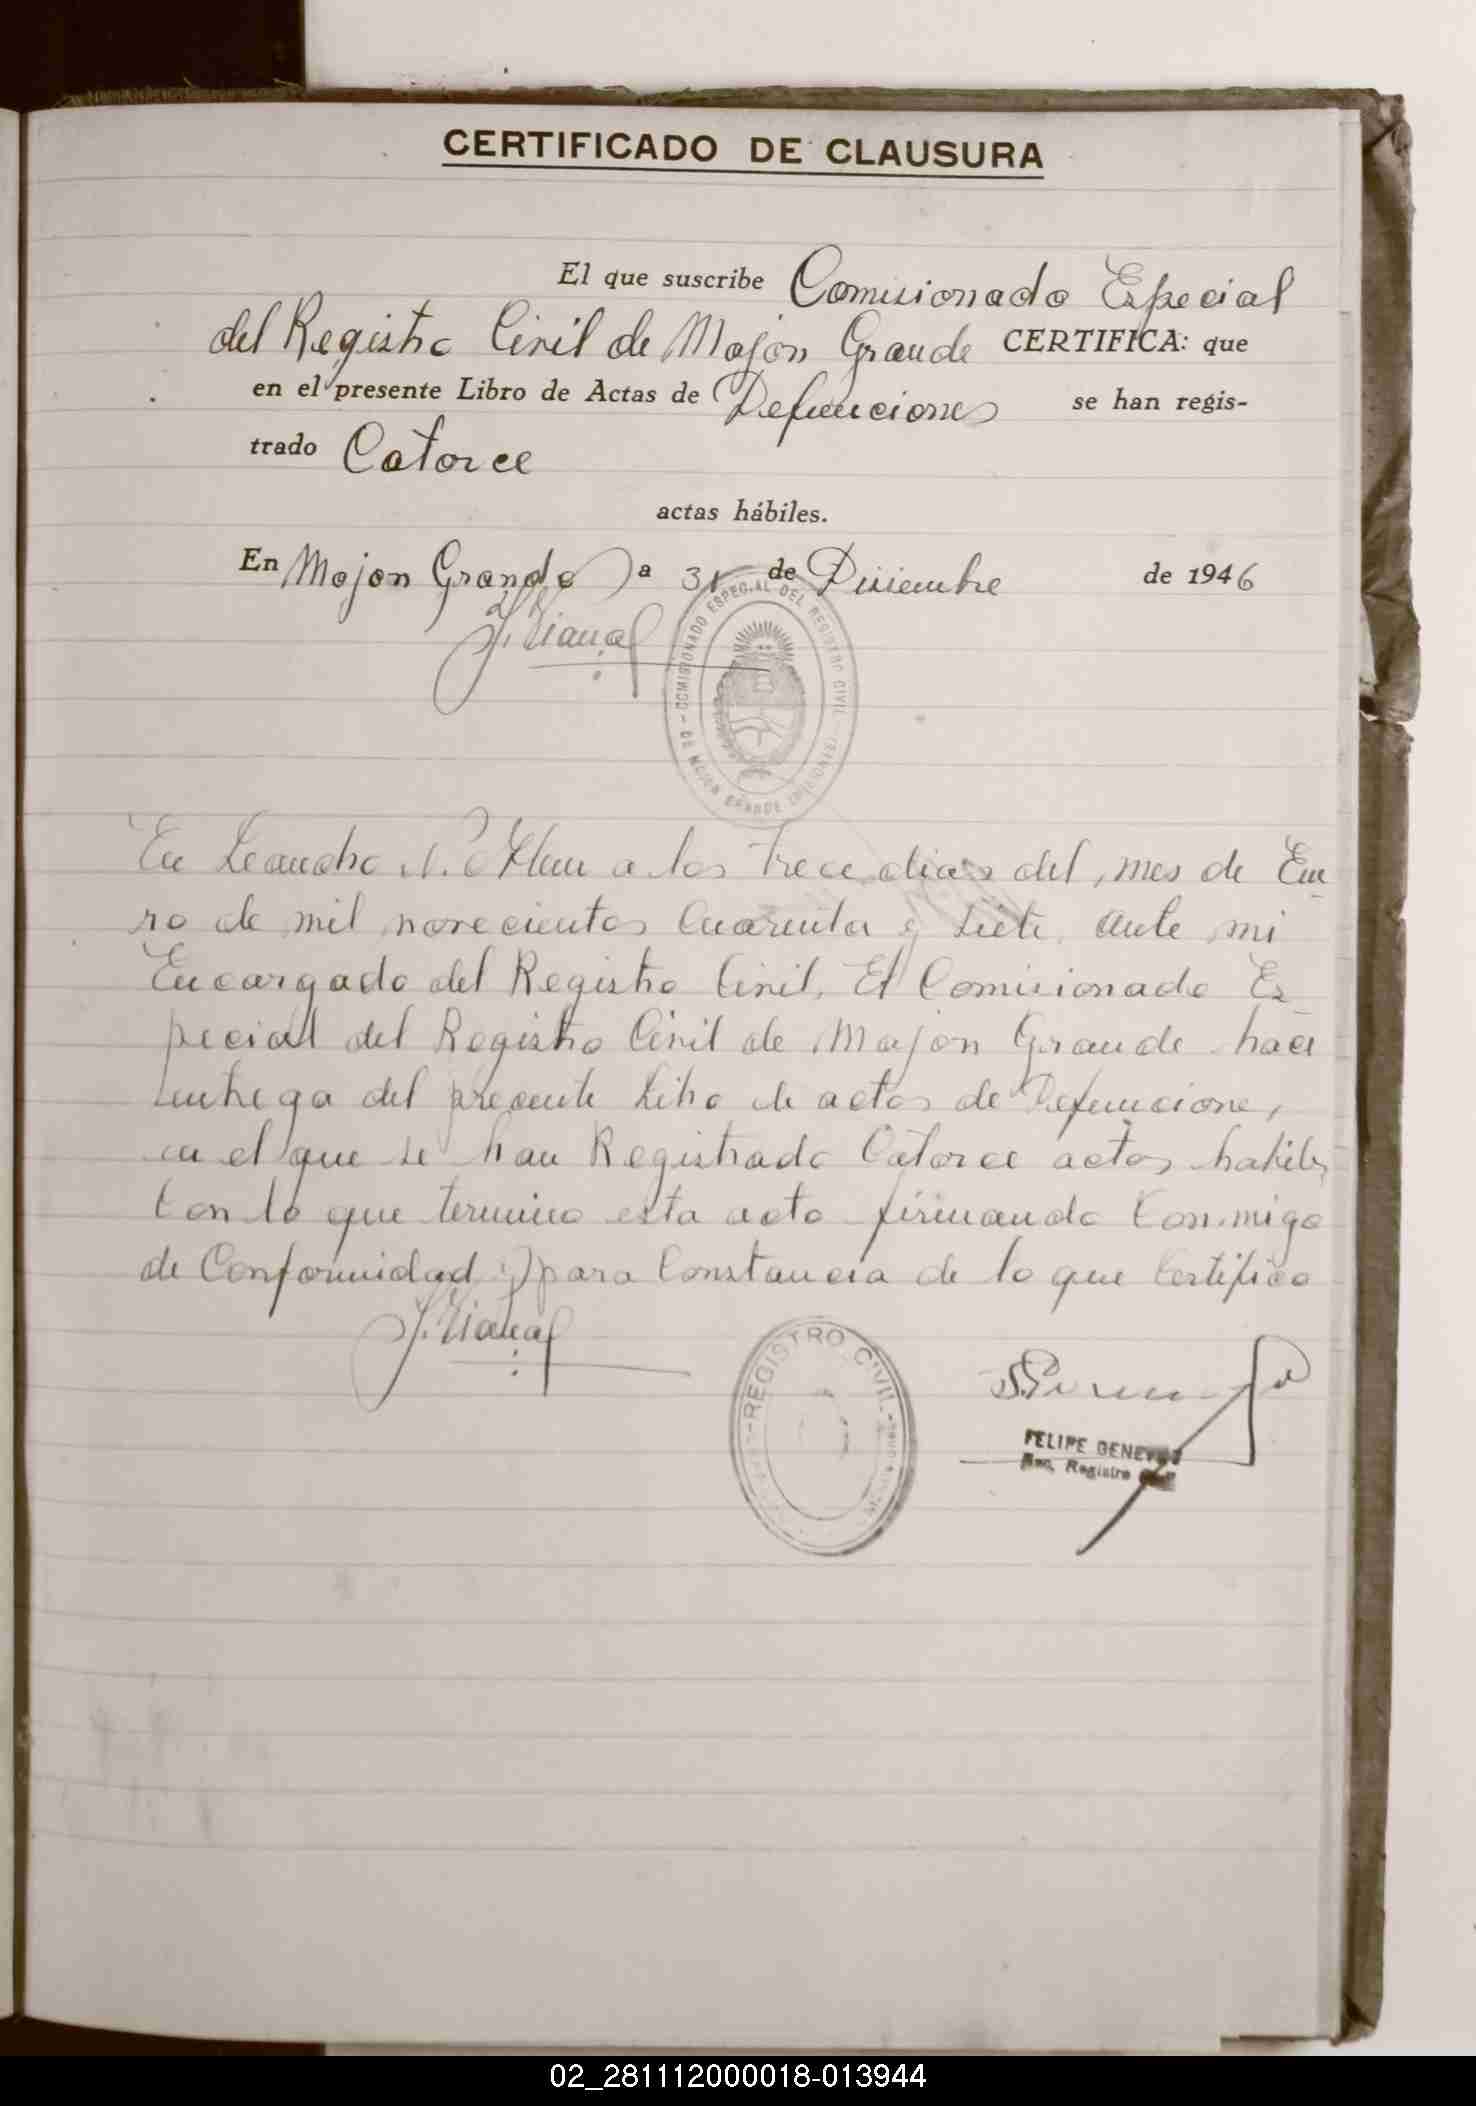 CERTIFICADO DE CLAUSURA
El que suscribe Comisionado Especial
del Registro Civil de Mojon Grande CERTIFICA: que
en el presente Libro de Actas de Defunciones se han regis-
trado Catorce
actas hábiles.
En Mojon Grande a 31 de Diciembre de 1946
COMISIONADO ESPECIAL DEL REGISTRO CIVIL
DE MOJON GRANDE (MISIONES)
En Leandro N. Alem a los trece dias del mes de Ene
ro de mil novecientos Cuarenta y siete, ante mi
Encargado del Registro Civil, El Comisionado Es
pecial del Registro Civil de Mojon Grande hace
entrega del presente Libro de actas de Defunciones,
en el que se han Registrado Catorce actas habiles
Con lo que termino esta acto firmando Conmigo
de Conformidad y para Constancia de lo que Certifico
REGISTRO CIVIL
FELIPE
Enc. Registro Civil
02_281112000018-013944